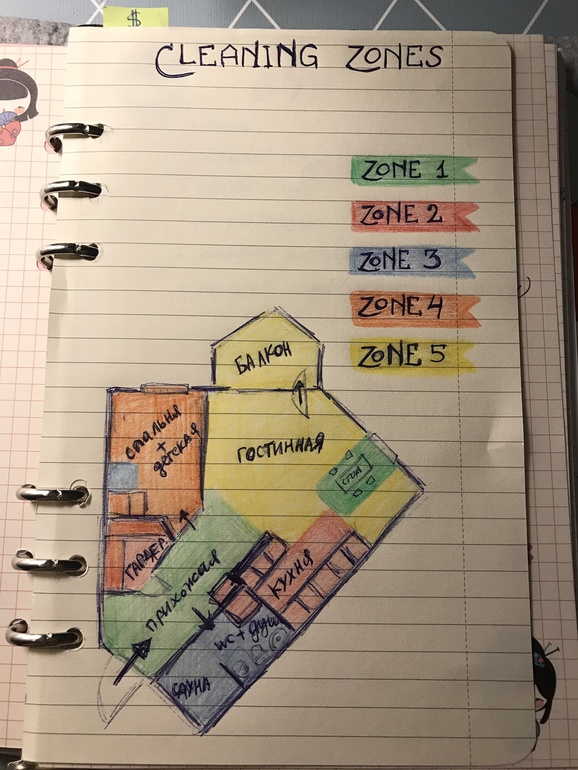 $
CLEANING ZONES
ZONE 1
ZONE 2
ZONE 3
ZONE 4
ZONE 5
БАЛКОН
спальня
+
детская
ГОСТИННАЯ
стол
ГАРДЕР
КУХНЯ
ПРИХОЖАЯ
wc + душ
САУНА